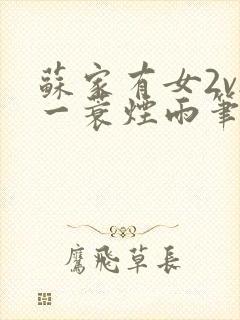 蘇家有女2v
一蓑煙雨筆
鷹飛草長